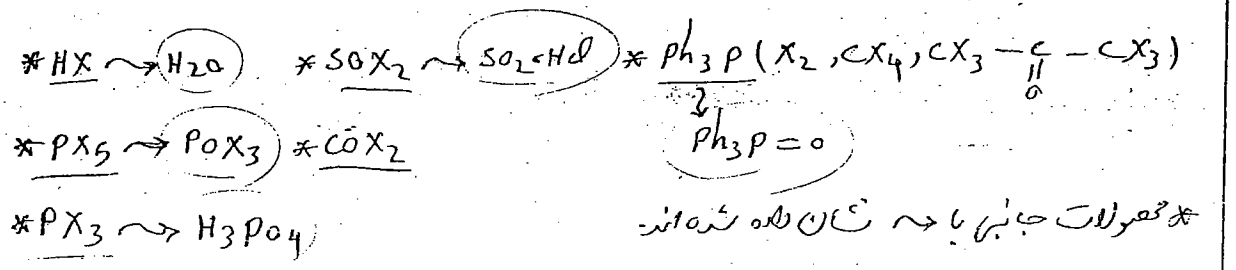 * HX ⇝ H2O * SOX2 ⇝ SO2, HCl * Ph3P (X2, CX4, CX3 - C - CX3)
O
* PX5 ⇝ POX3 * COX2 Ph3P = O
* PX3 ⇝ H3PO4
* محصولات جانبی با ⇝ نشان داده شده‌اند.